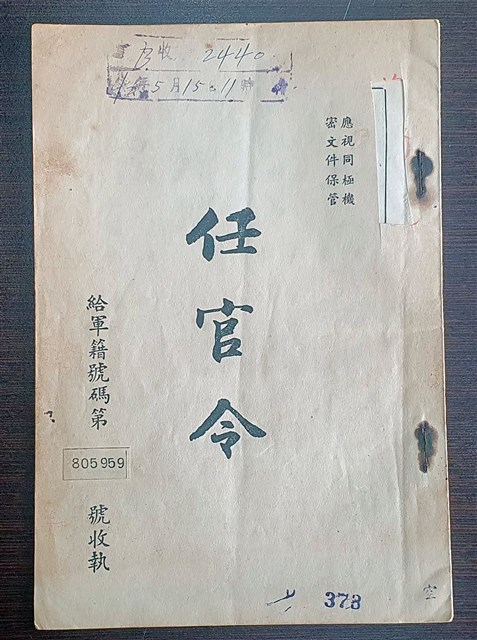 收 2440
年5月15日11時
應視同極機
密文件保管
任官令
給軍籍號碼第
805959
號收執
373
空